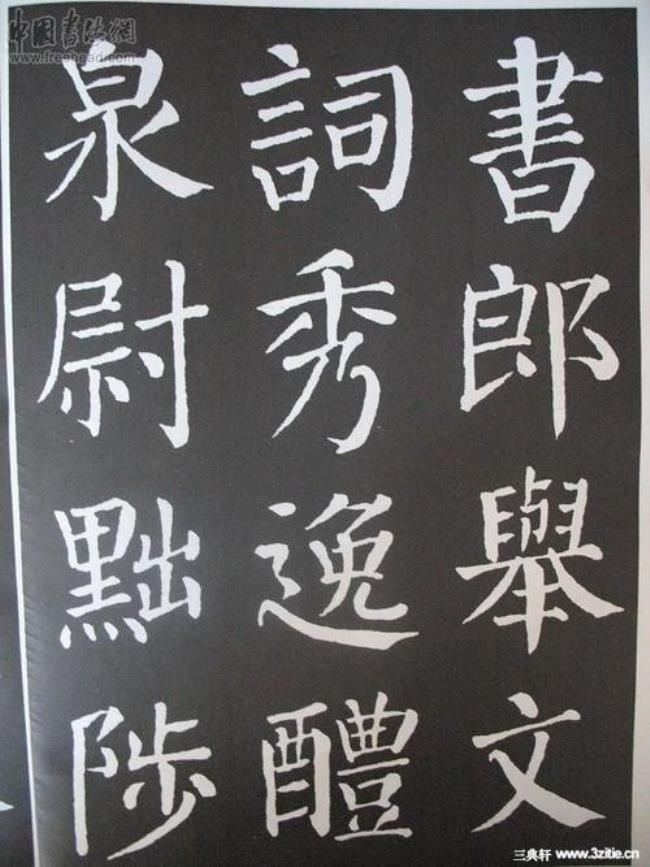 書郎舉文
詞秀逸醴
泉尉黜陟
中国书法網
www.freehead.com
三典轩 www.3zitie.cn